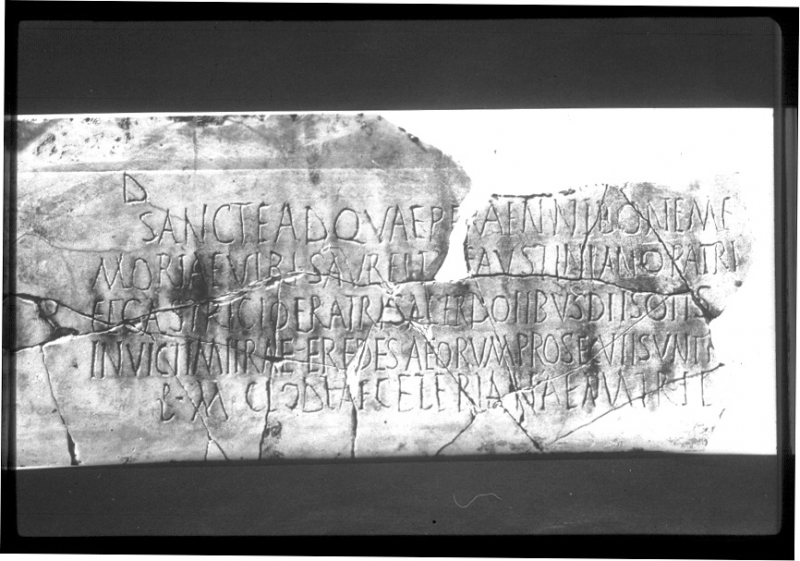 D
SANCTE ADQVAE PE RAENNI BONE ME
MORIAE VIBIS AVRELI FAVSTINIANO PATRI
ET CASTRICI FRATRI SACERDOTIBVS DII SOLIS
INVICTI MITRAE EREDES AEORVM PROSEQVITI SVNT
B · M CLODIAE CELERIANAE MATRI